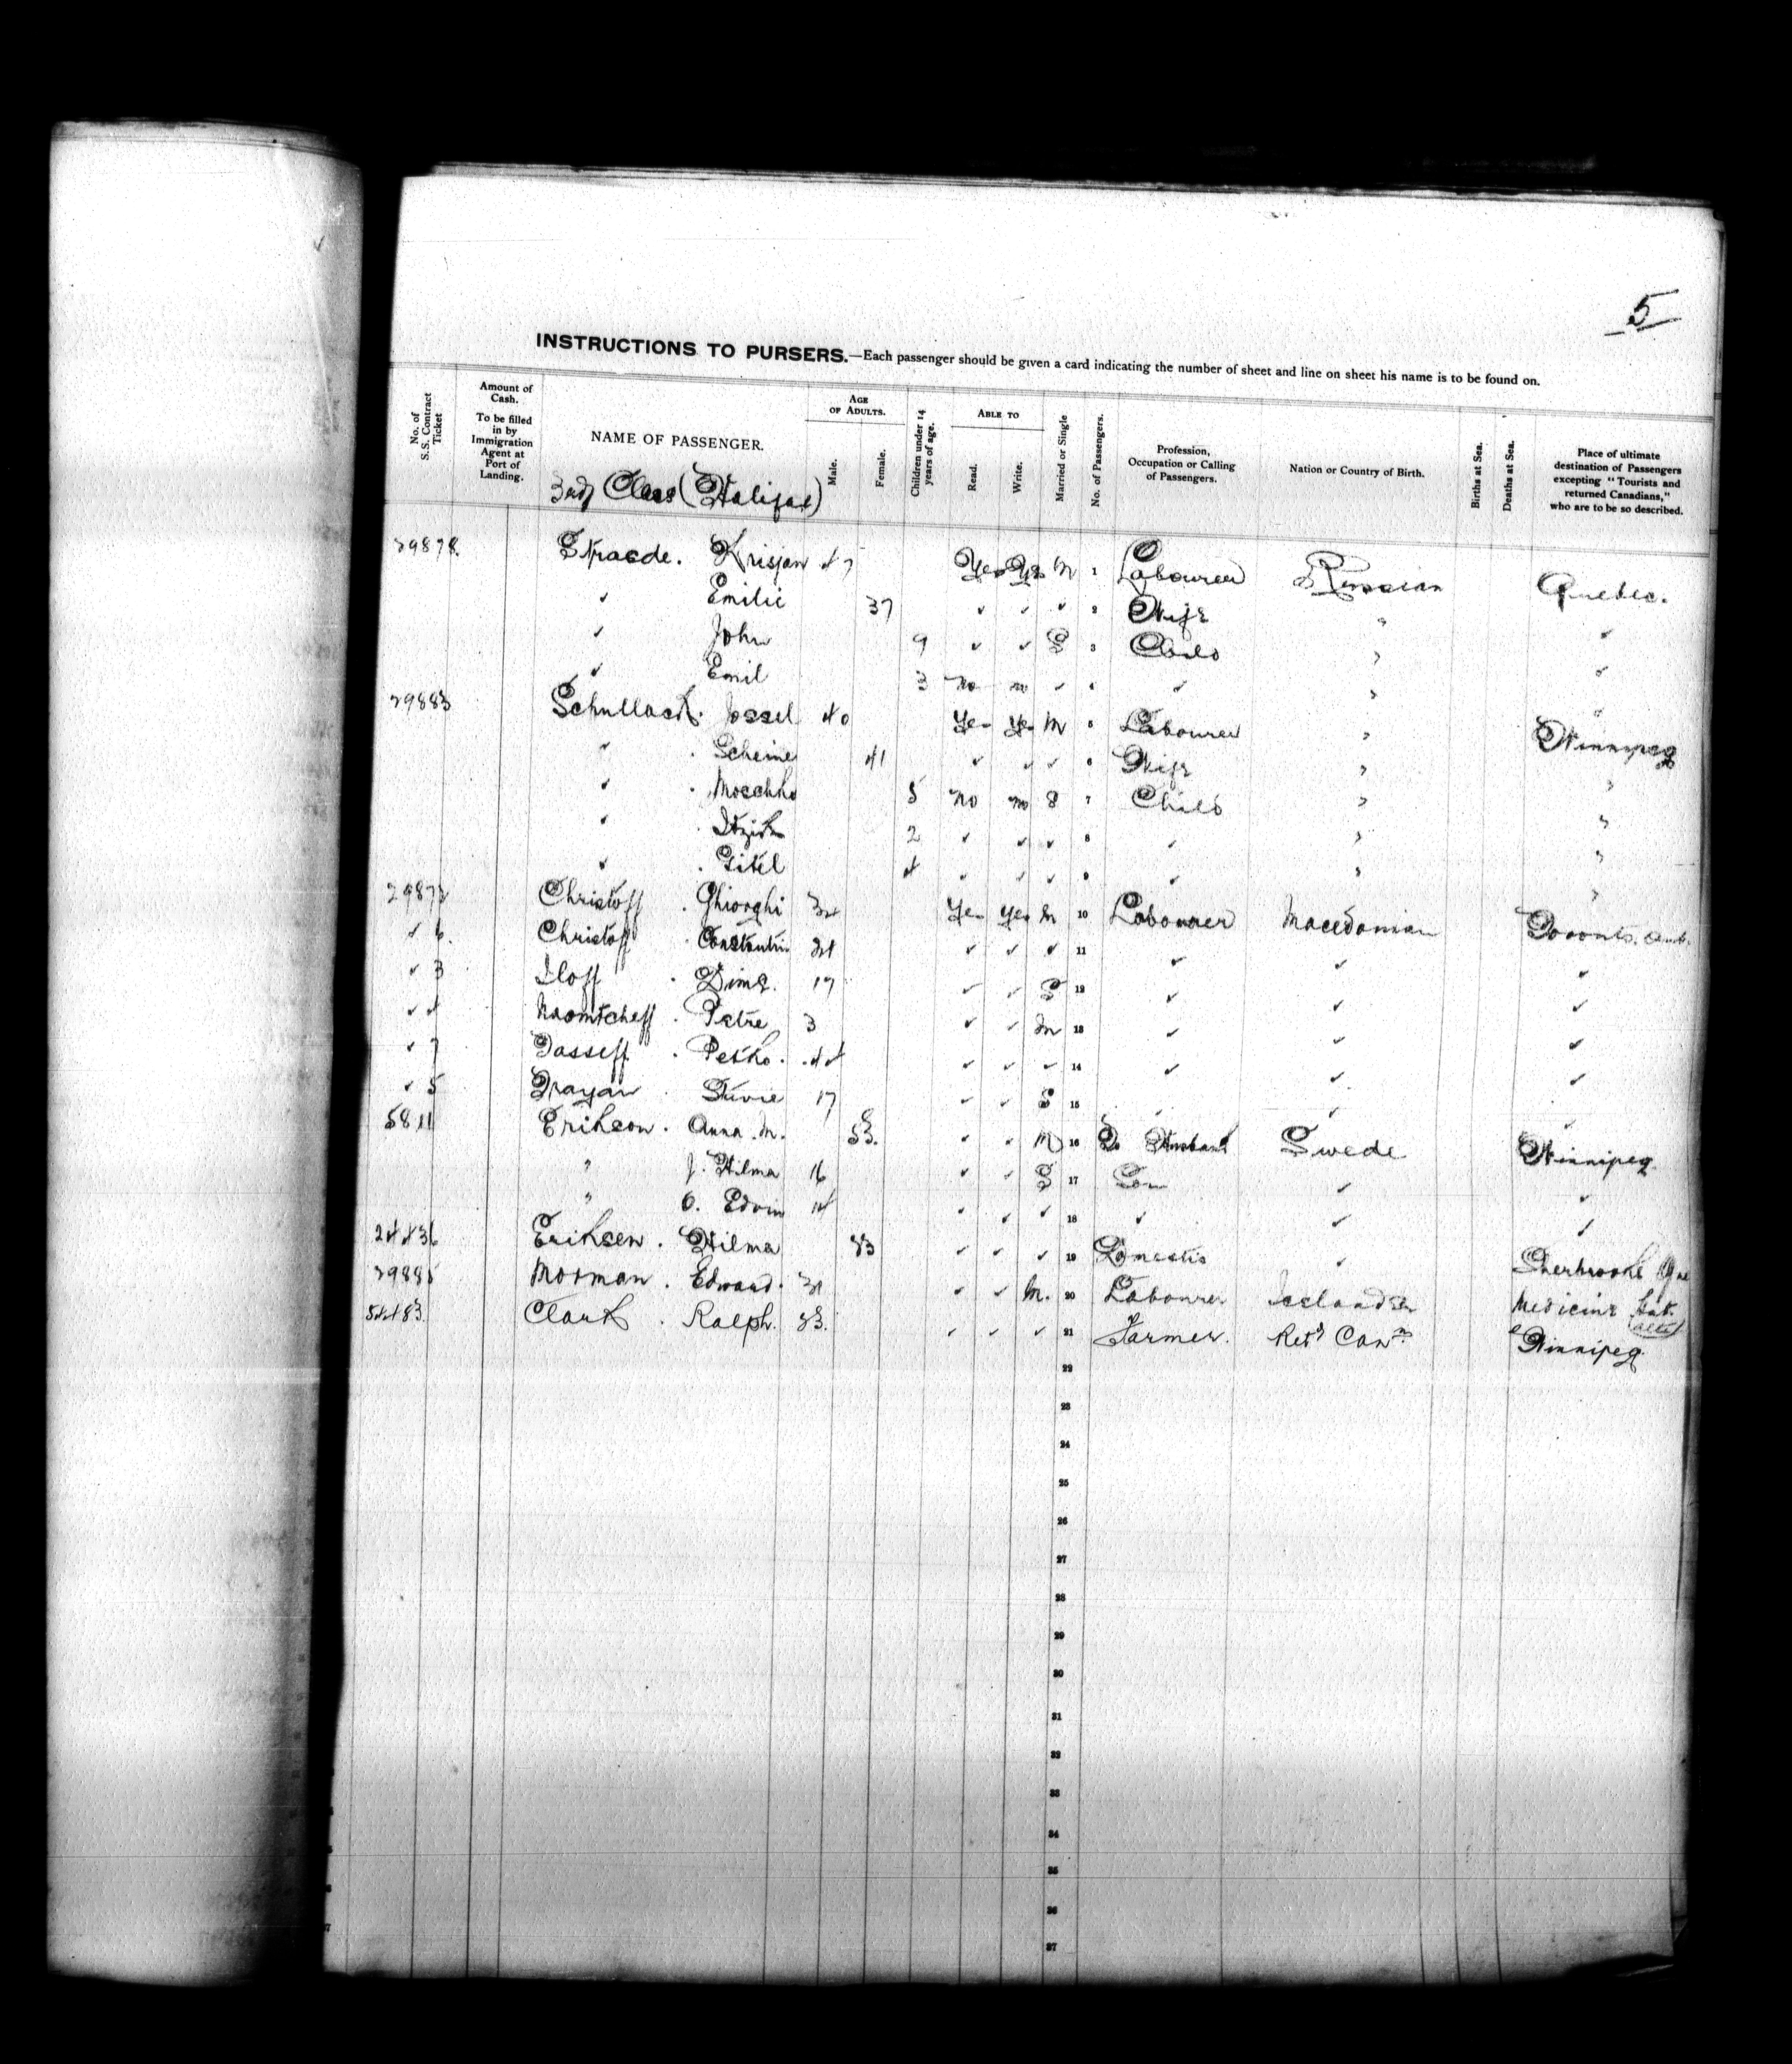 5
INSTRUCTIONS TO PURSERS.—Each passenger should be given a card indicating the number of sheet and line on sheet his name is to be found on.
No. of S.S. Contract Ticket
Amount of Cash. To be filled in by Immigration Agent at Port of Landing.
NAME OF PASSENGER.
3rd Class (Halifax)
AGE OF ADULTS.
Male.
Female.
Children under 14 years of age.
ABLE TO
Read.
Write.
Married or Single
No. of Passengers.
Profession, Occupation or Calling of Passengers.
Nation or Country of Birth.
Births at Sea.
Deaths at Sea.
Place of ultimate destination of Passengers excepting "Tourists and returned Canadians," who are to be so described.
29878 Straede. Krisjan 47 Yes Yes M 1 Labourer Russian Quebec.
✓ Emilie 37 ✓ ✓ ✓ 2 Wife " ✓
✓ John 9 ✓ ✓ S 3 Child " ✓
✓ Emil 3 No no ✓ 4 ✓ " "
29883 Jossel 40 Yes Yes M 5 Labourer " Winnipeg
" . Scheine 41 ✓ ✓ ✓ 6 Wife " "
✓ . Moschko 5 No no S 7 Child " "
✓ . 2 ✓ ✓ ✓ 8 ✓ " "
✓ . Gitel 4 ✓ ✓ ✓ 9 ✓ " "
Christoff . Ghiorghi Yes Yes M 10 Labourer Macedonian Toronto. Ont.
✓ 6. Christoff . Constantin ✓ ✓ ✓ 11 ✓ ✓ ✓
✓ 3 Iloff . 17 ✓ ✓ S 12 ✓ ✓ ✓
✓ 4 Naomtcheff . Petre 3 ✓ ✓ M 13 ✓ ✓ ✓
✓ 7 . 44 ✓ ✓ ✓ 14 ✓ ✓ ✓
✓ 5 17 ✓ ✓ S 15 ✓ ✓ ✓
5811 Erikson. Anna. M. 53. ✓ ✓ M 16 To Husband Swede Winnipeg.
" J. Hilma 16 ✓ ✓ S 17 Son ✓ ✓
" O. Edvin 14 ✓ ✓ ✓ 18 ✓ ✓ ✓
24436 Eriksen. Hilma 23 ✓ ✓ ✓ 19 Domestic ✓ Sherbrooke Que
29885 Morman. Edward. ✓ ✓ M. 20 Labourer Icelander Medicine Hat. (alta)
54483. Clark . Ralph. 23. ✓ ✓ ✓ 21 Farmer. Ret'd Can'n Winnipeg.
22
23
24
25
26
27
28
29
30
31
32
33
34
35
36
37